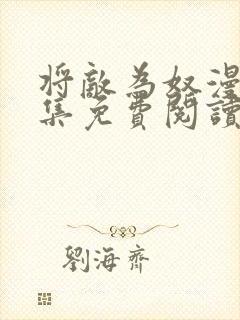 将敵為奴漫
集免費閱讀
劉海齊